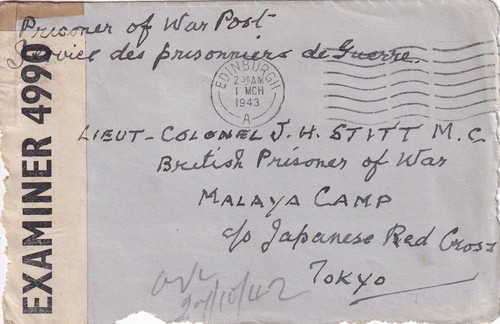 Prisoner of War Post
Service des prisonniers de Guerre.
EXAMINER 4990
EDINBURGH
1 MCH
1943
A
LIEUT-COLONEL J. H. STITT M.C
British Prisoner of War
MALAYA CAMP
c/o Japanese Red Cross
TOKYO